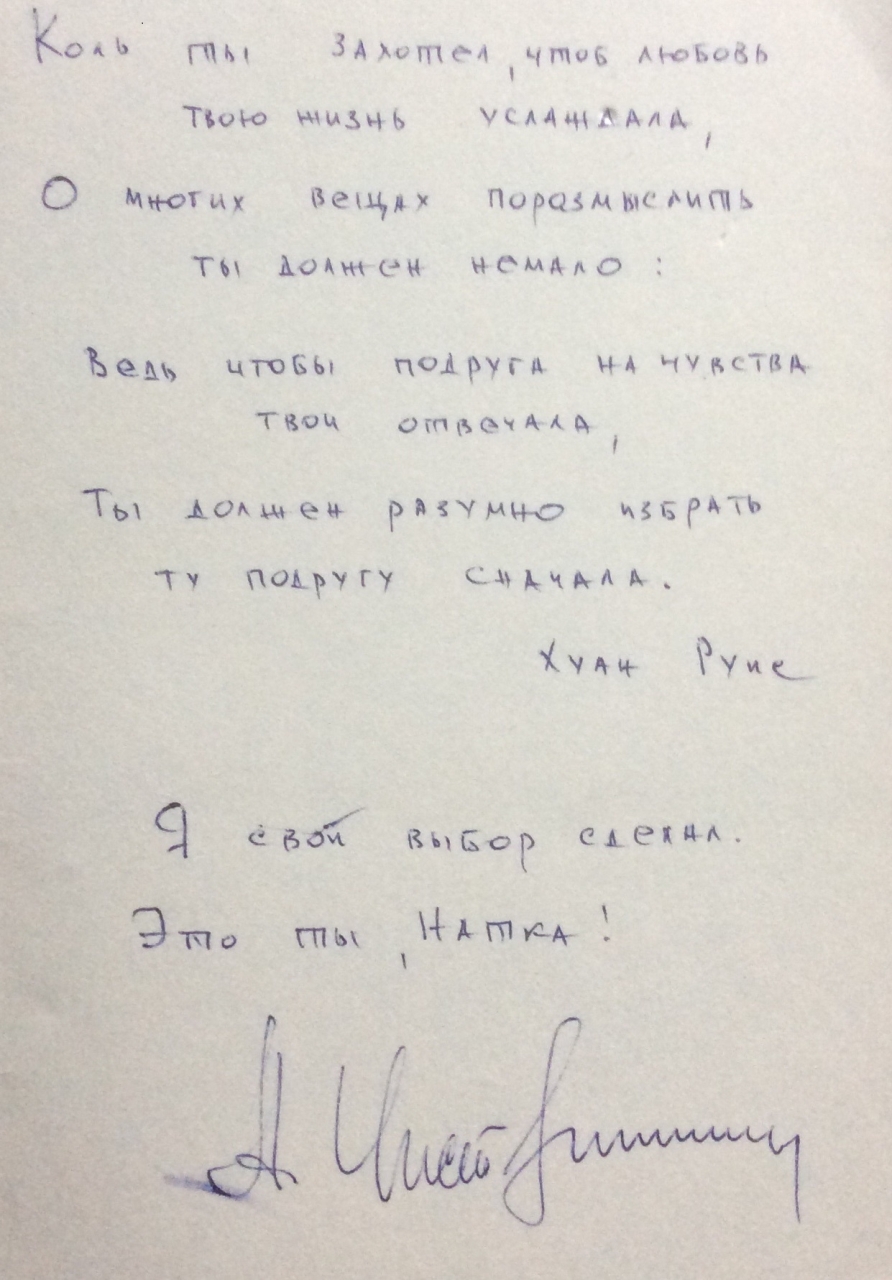 Коль ты захотел, чтоб любовь
твою жизнь услаждала,
О многих вещах поразмыслить
ты должен немало:
Ведь чтобы подруга на чувства
твои отвечала,
Ты должен разумно избрать
ту подругу сначала.
Хуан Руис
Я свой выбор сделал.
Это ты, Натка!